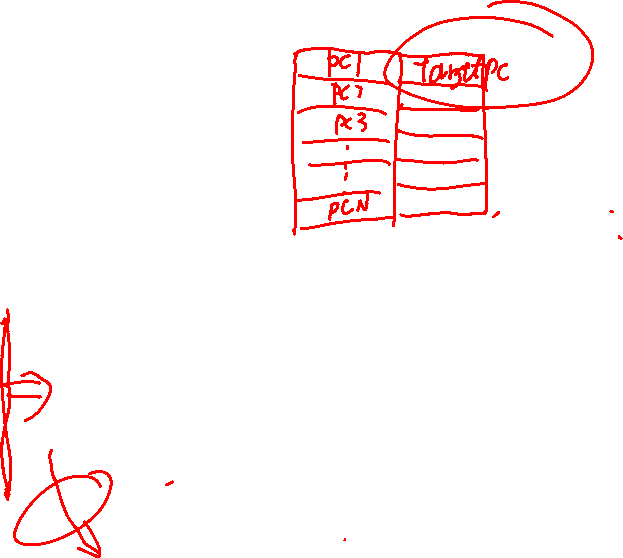 PC1 Target PC
PC2
PC3
PCN